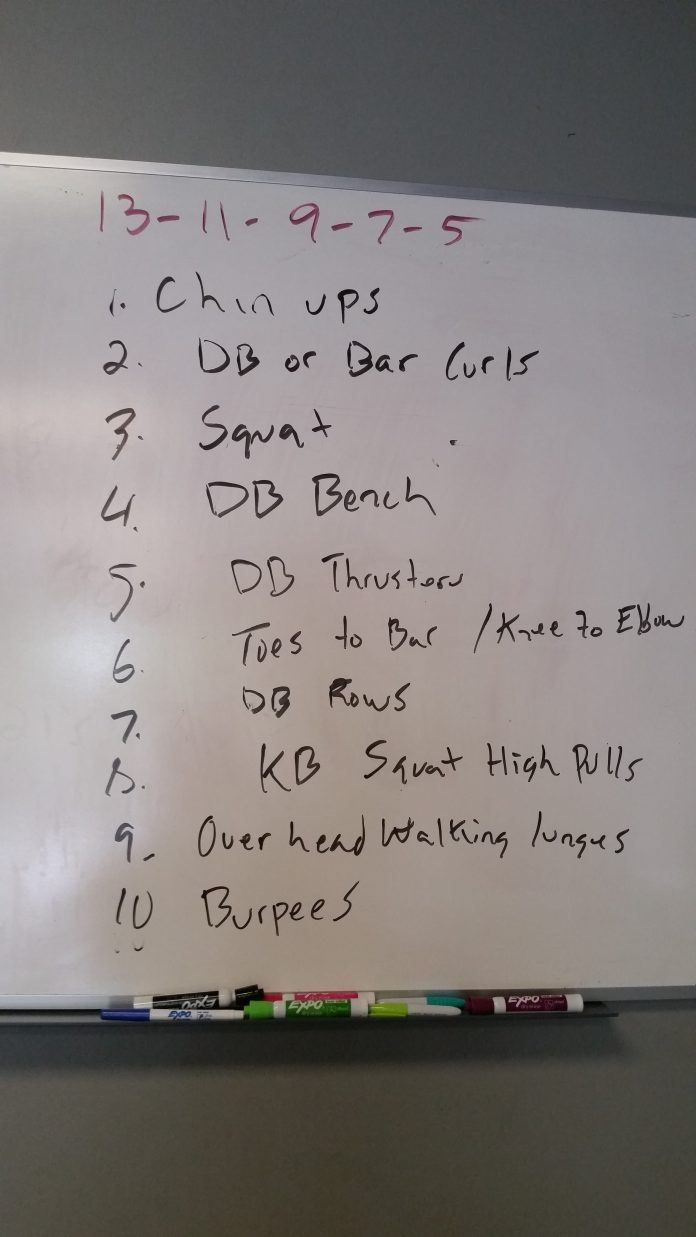 13-11-9-7-5
1. Chin ups
2. DB or Bar Curls
3. Squat
4. DB Bench
5. DB Thrusters
6. Toes to Bar / Knee to Elbow
7. DB Rows
8. KB Squat High Pulls
9. Over head Walking lunges
10 Burpees
EXPO
EXPO EXPO EXPO